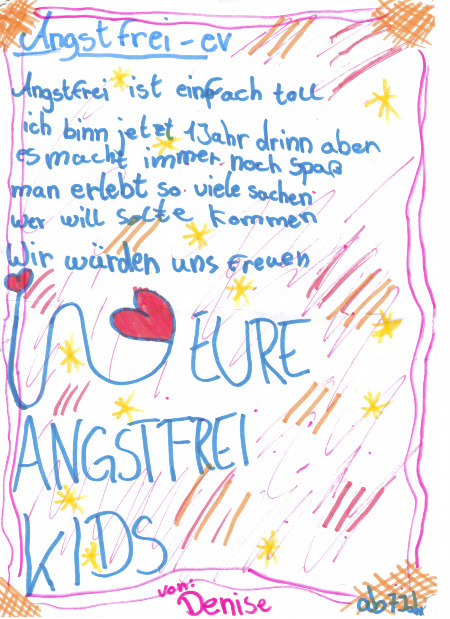 Angstfrei-ev
Angstfrei ist einfach toll
ich binn jetzt 1Jahr drinn aben
es macht immer noch spaß
man erlebt so viele sachen
wer will solte kommen
Wir würden uns freuen
EURE
ANGSTFREI
KIDS
von:
Denise